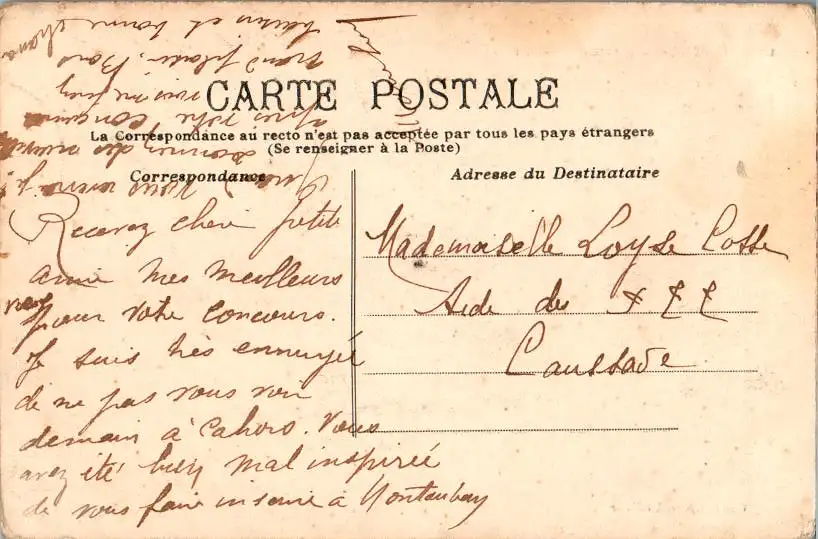 CARTE POSTALE
La Correspondance au recto n'est pas acceptée par tous les pays étrangers
(Se renseigner à la Poste)
Correspondance
Adresse du Destinataire
Recevez chère petite
amie mes meilleurs
vœux
pour votre concours.
Je suis très ennuyée
de ne pas vous voir
demain à Cahors. Vous
avez été bien mal inspirée
de vous faire inscrire à Montauban
Mademoiselle Loyse Cosse
Aide des P T T
Caussade
après votre concours
grand plaisir. Bons
baisers et bonne chance